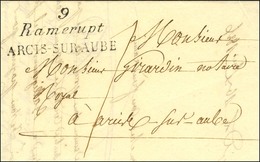 9
Ramerupt
ARCIS-SUR-AUBE
Monsieur
Monsieur Girardin notaire
Royal
à arcis sur aube